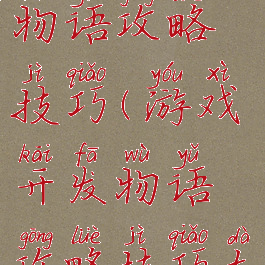 物语攻略
jì qiǎo yóu xì
技巧(游戏
kāi fā wù yǔ
开发物语
gōng lüè jì qiǎo dà
攻略技巧大